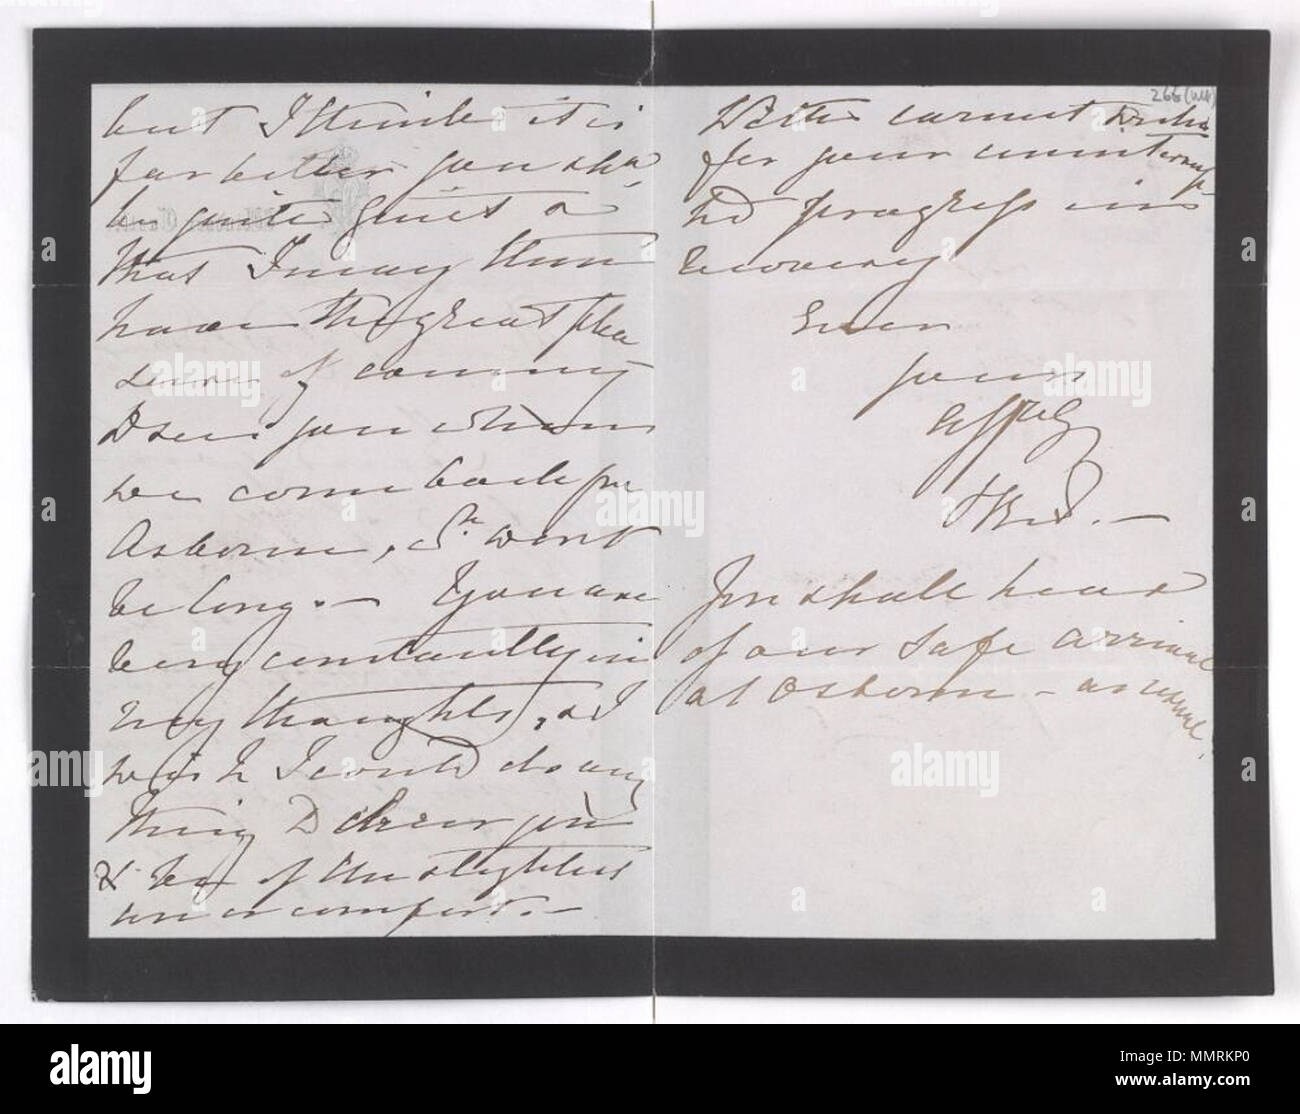 but I think it is
far better you shd
be quite quiet &
that I may then
have the great plea
sure of coming
to see you when
we come back fm
Osborne, wh wont
be long. — You are
very constantly in
my thoughts, & I
wish I could do any
thing to cheer you
& be of the slightest
use or comfort. —
266(verso)
Better cannot
for your uninterrup
ted progress in
recovery
Ever
yours
affly
VRI. —
You shall hear
of our safe arrival
at Osborne – as usual.
alamy
MMRKP0
www.alamy.com